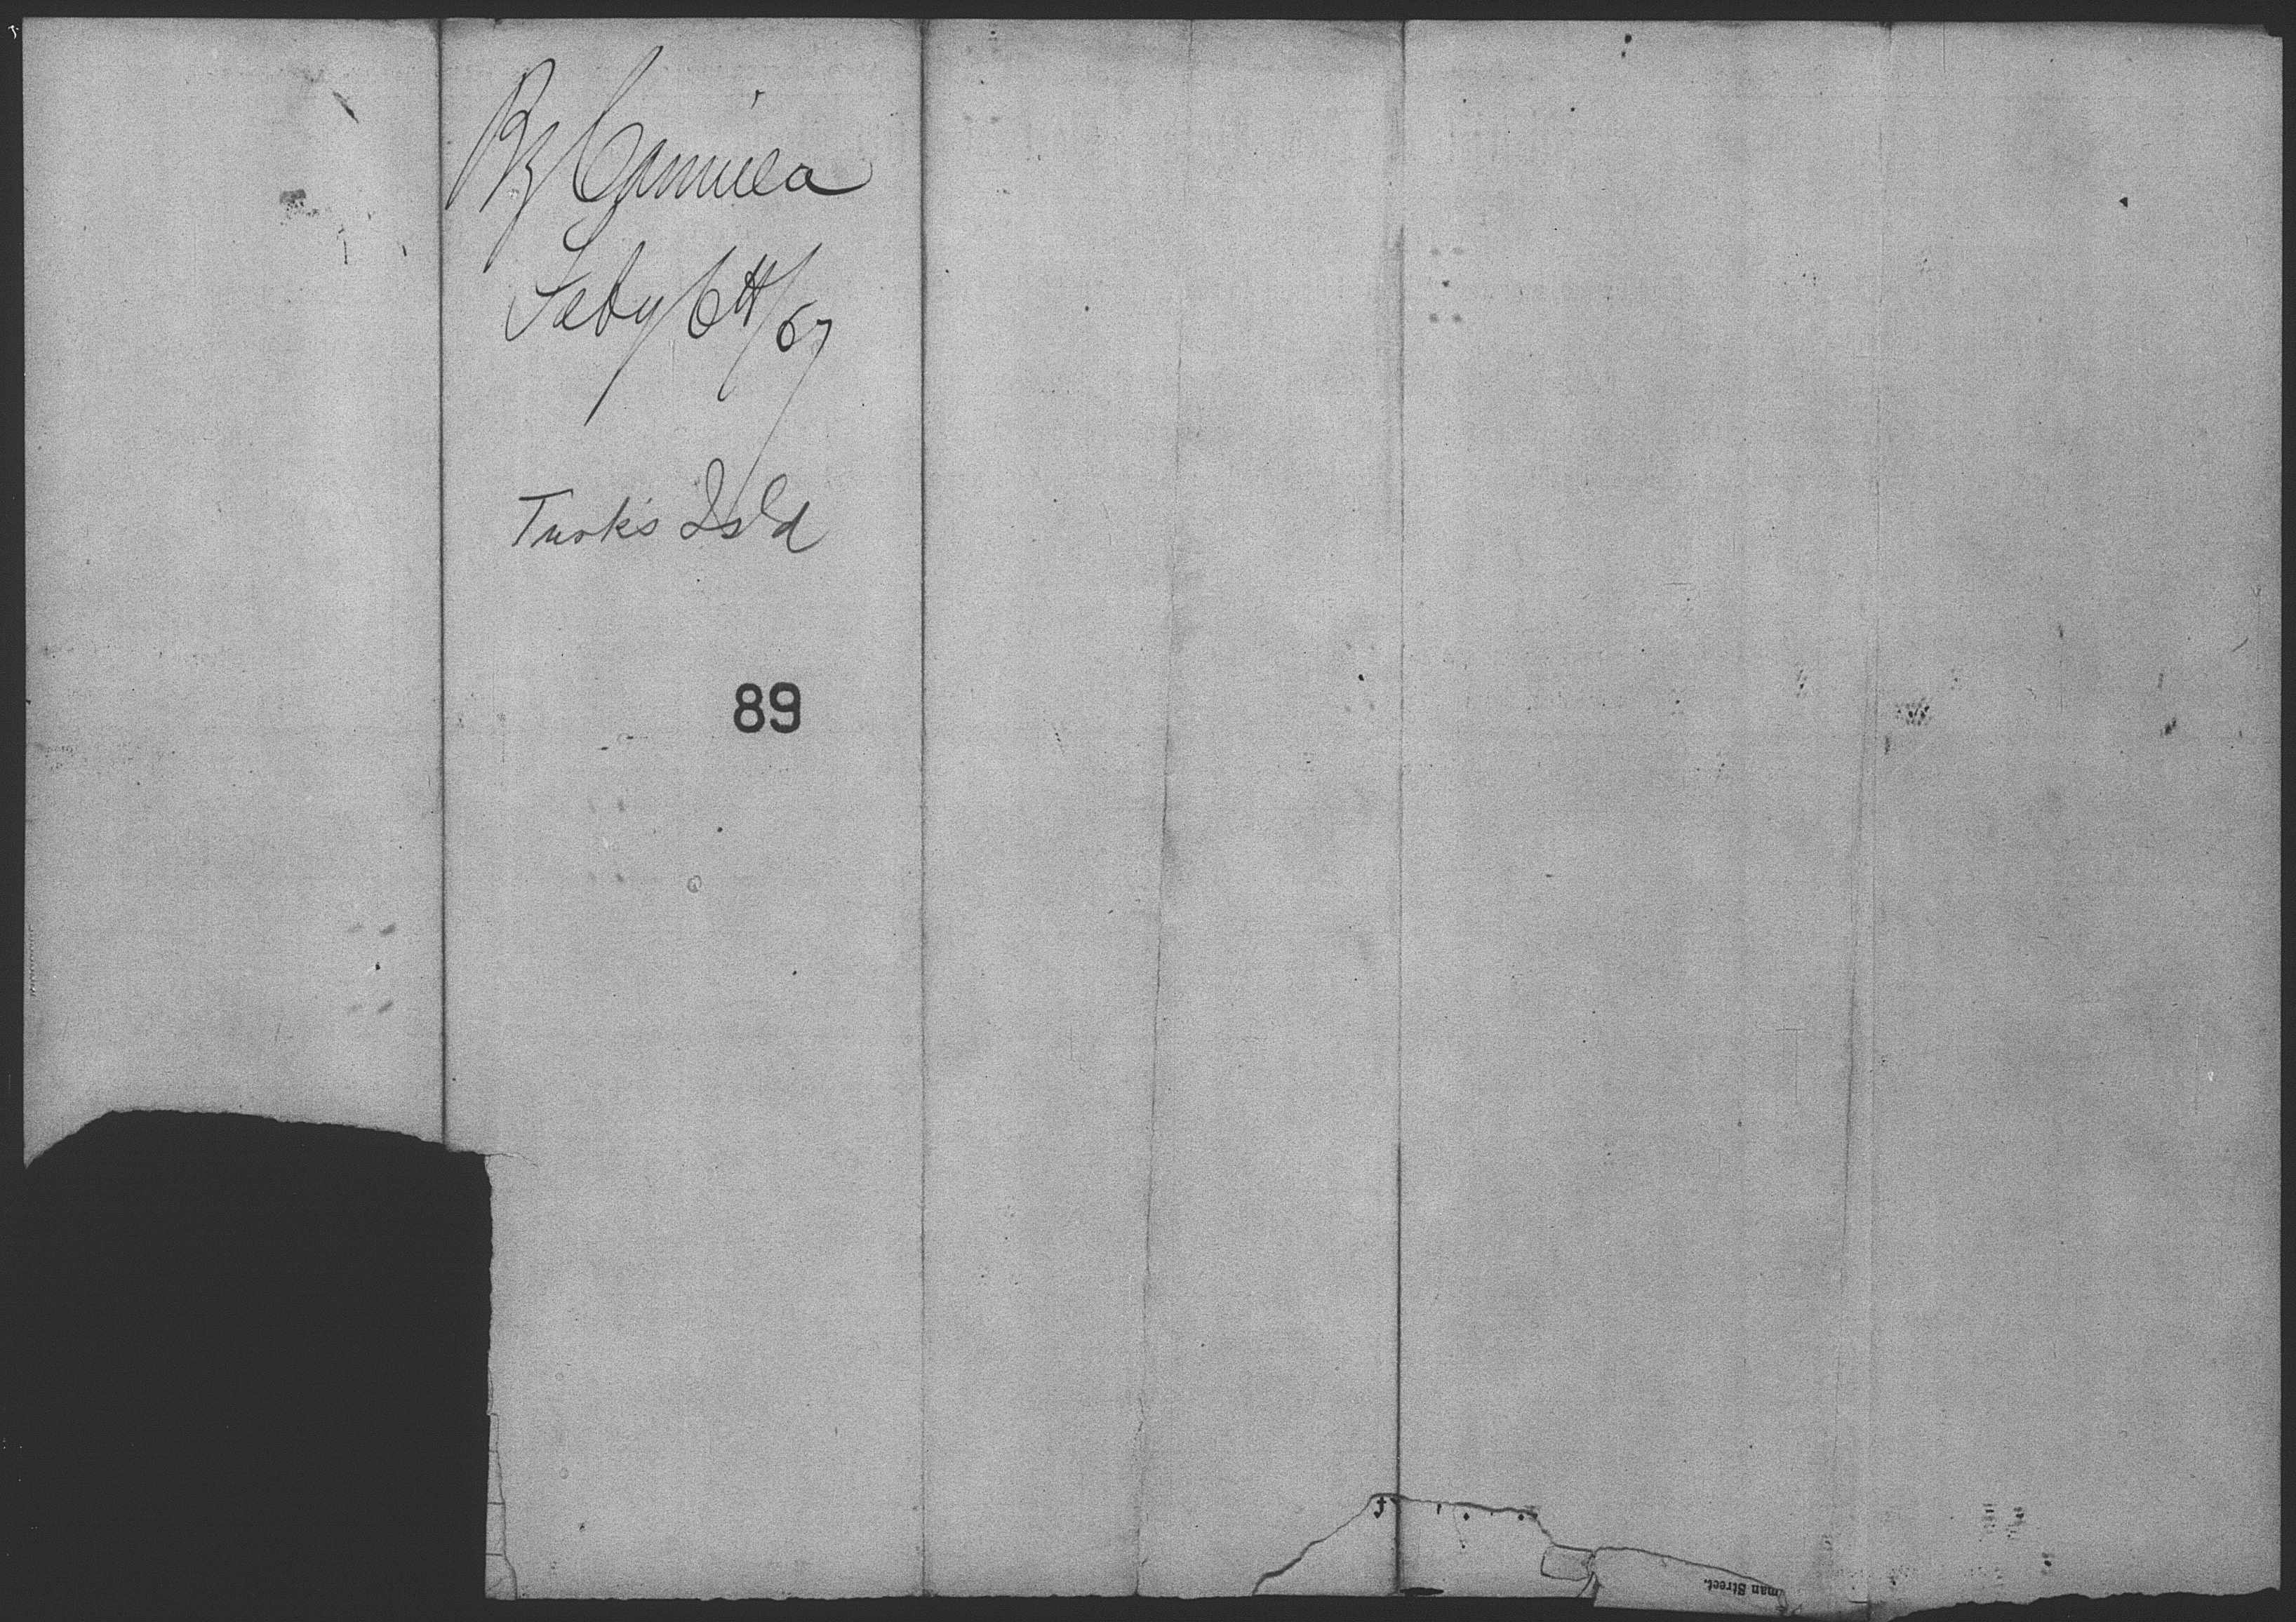 Bg Camilla
Feby 6th/67
Turks Isld
89
man Street.